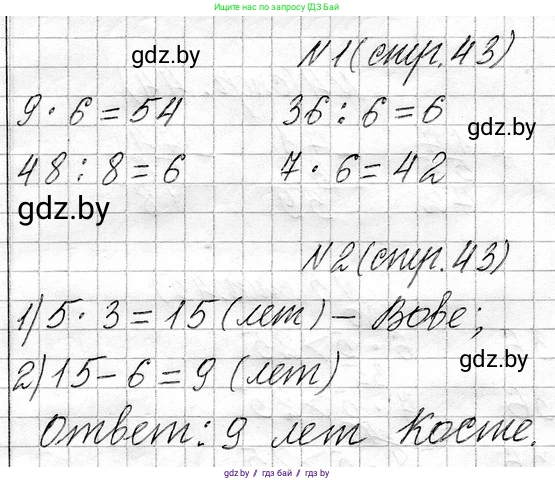 Ищите нас по запросу ГДЗ Бай
gdz.by
N1(стр.43)
9·6=54 36:6=6
gdz.by
48:8=6 7·6=42
gdz.by
N2(стр.43)
1)5·3=15(лет)-Вове;
gdz.by
2)15-6=9(лет)
Ответ: 9 лет Косте.
gdz.by / гдз бай / гдз by